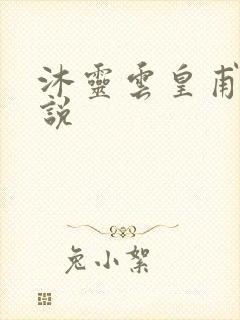 沐靈雲皇甫
說
兔小絮